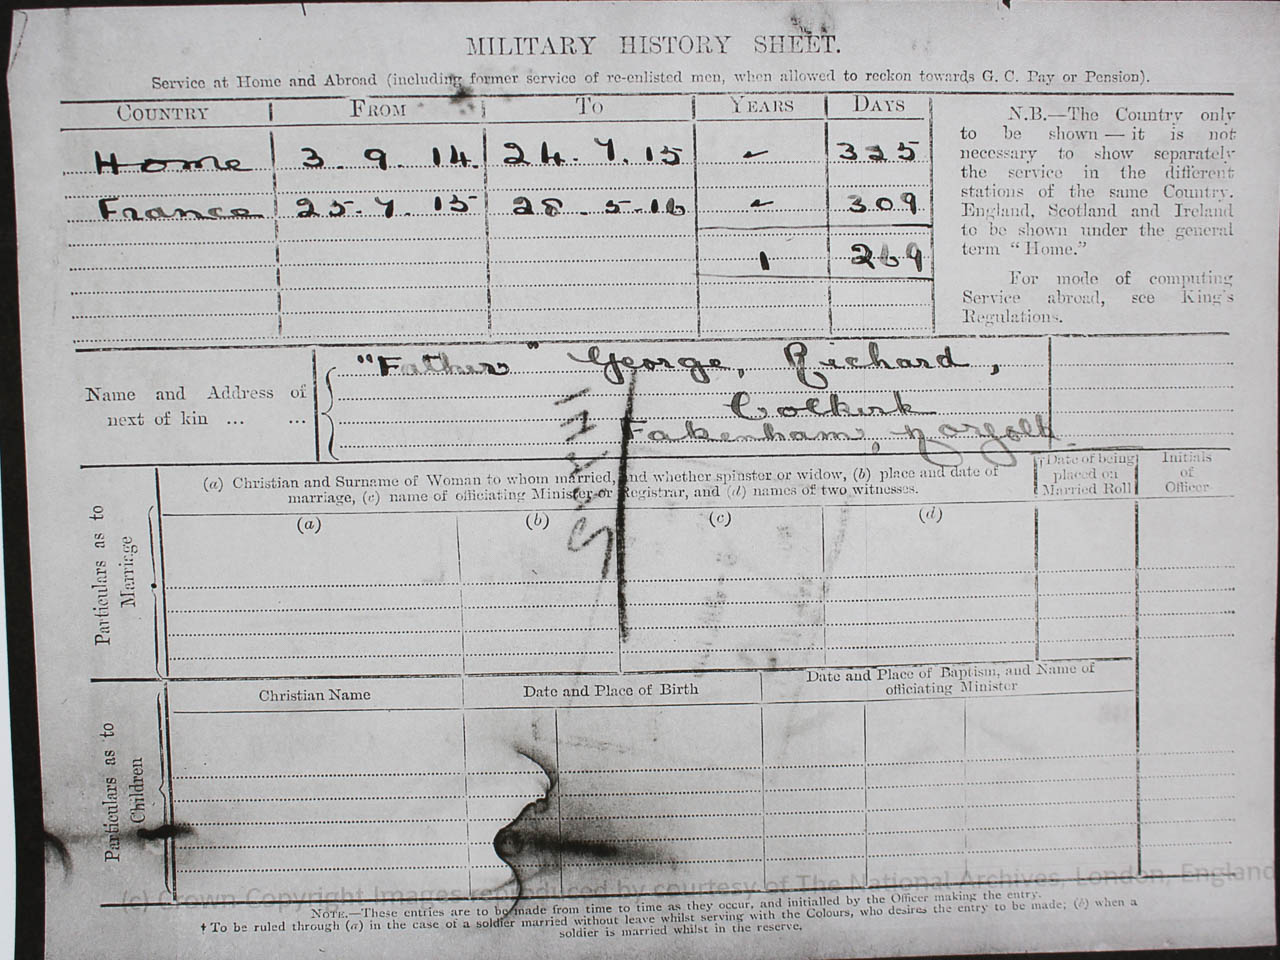 MILITARY HISTORY SHEET.
Service at Home and Abroad (including former service of re-enlisted men, when allowed to reckon towards G. C. Pay or Pension).
COUNTRY FROM TO YEARS DAYS
Home 3. 9. 14. 24. 7. 15 - 325
France 25. 7. 15 28. 5. 16 - 309
1 269
N.B.—The Country only
to be shown — it is not
necessary to show separately
the service in the different
stations of the same Country.
England, Scotland and Ireland
to be shown under the general
term “ Home.”
For mode of computing
Service abroad, see King's
Regulations.
Name and Address of
next of kin ... ...
"Father" George, Richard,
Colkirk
Fakenham, Norfolk.
Particulars as to
Marriage
(a) Christian and Surname of Woman to whom married, and whether spinster or widow, (b) place and date of
marriage, (c) name of officiating Minister or Registrar, and (d) names of two witnesses.
† Date of being
placed on
Married Roll
Initials
of
Officer
(a) (b) (c) (d)
Particulars as to
Children
Christian Name
Date and Place of Birth
Date and Place of Baptism, and Name of
officiating Minister
(c) Crown Copyright Images reproduced by courtesy of The National Archives, London, England
NOTE.—These entries are to be made from time to time as they occur, and initialled by the Officer making the entry.
† To be ruled through (a) in the case of a soldier married without leave whilst serving with the Colours, who desires the entry to be made; (b) when a
soldier is married whilst in the reserve.